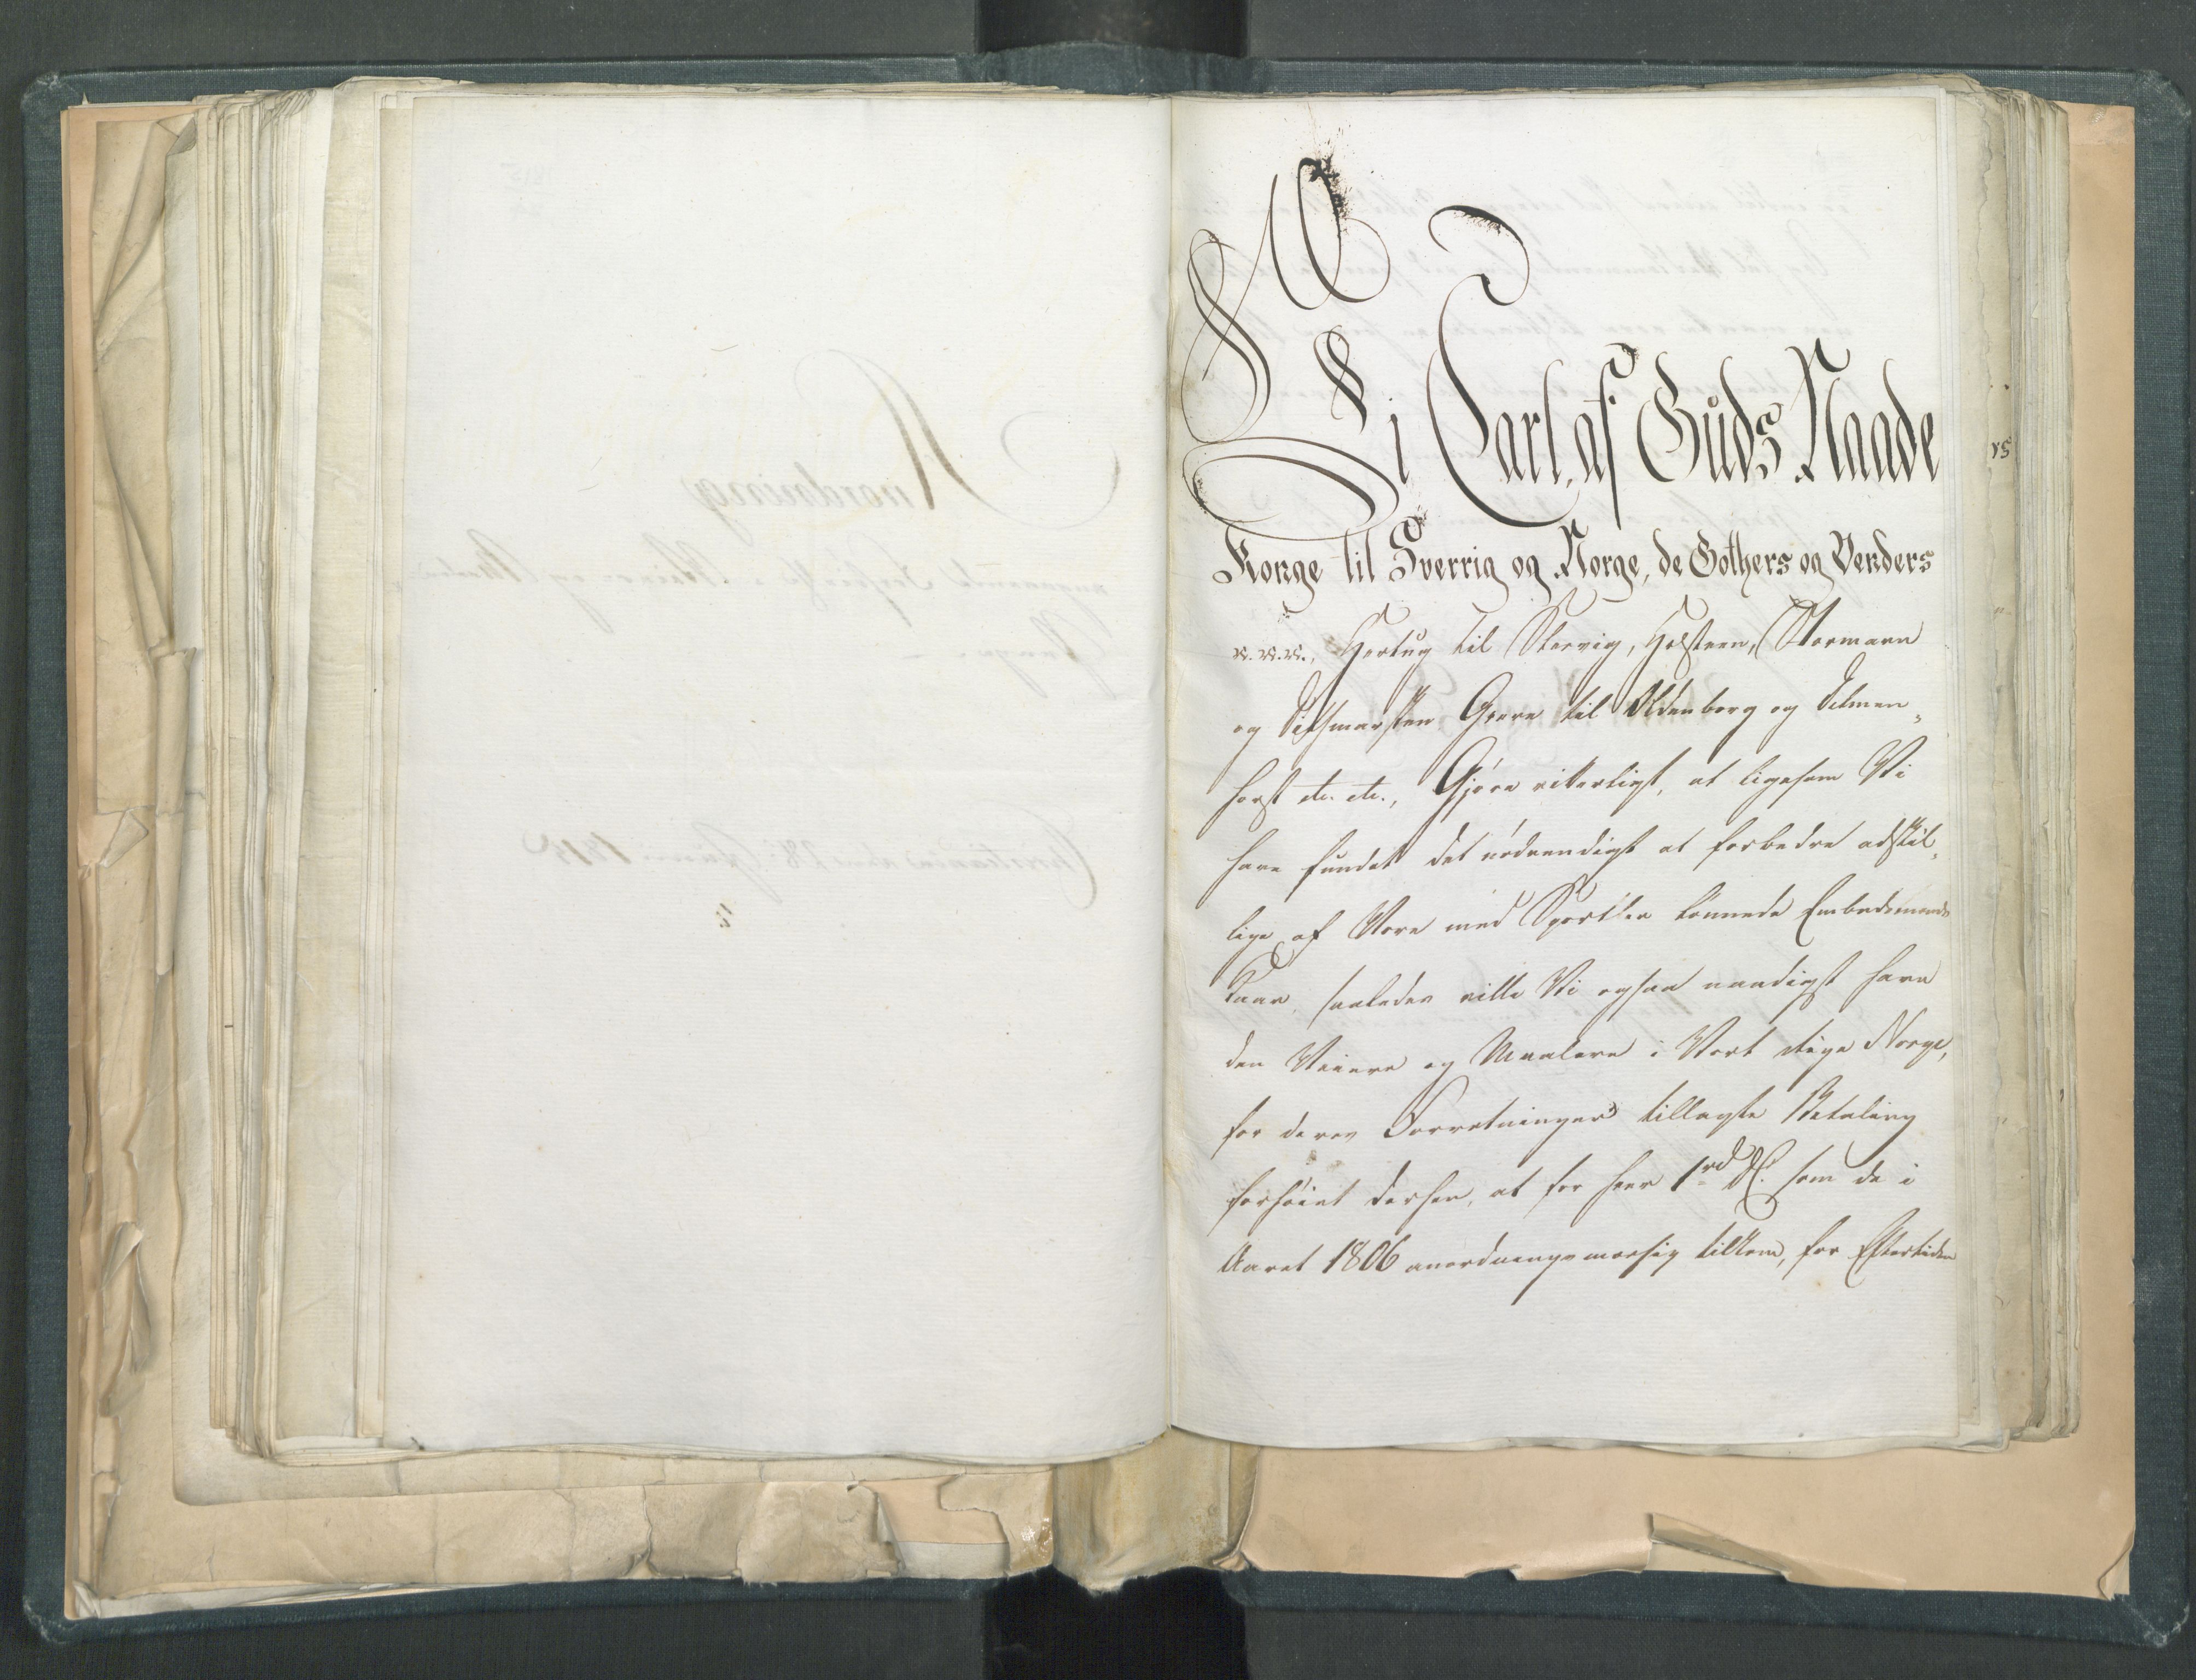 Vi Carl, af Guds Naade
Konge til Sverrig og Norge, de Gothers og Venders
&c. &c. &c., Hertug til Slesvig, Holsteen, Stormarn
og Ditsmarsken Greve til Oldenborg og Delmen„
horst etc. etc., Gjöre vitterligt, at ligesom Vi
have fundet det nödvendigt at forbedre adskil„
lige af Vore med Sportler lönnede Embedsmænds
Kaar, saaledes ville Vi ogsaa naadigst have
den Veiere og Maalere i Vort Rige Norge,
for deres Forretninger tillagte Betaling
forhöiet derhen, at for hver 1 rd. som de i
Aaret 1806 anordningsmæssig tilkom, for Eftertiden